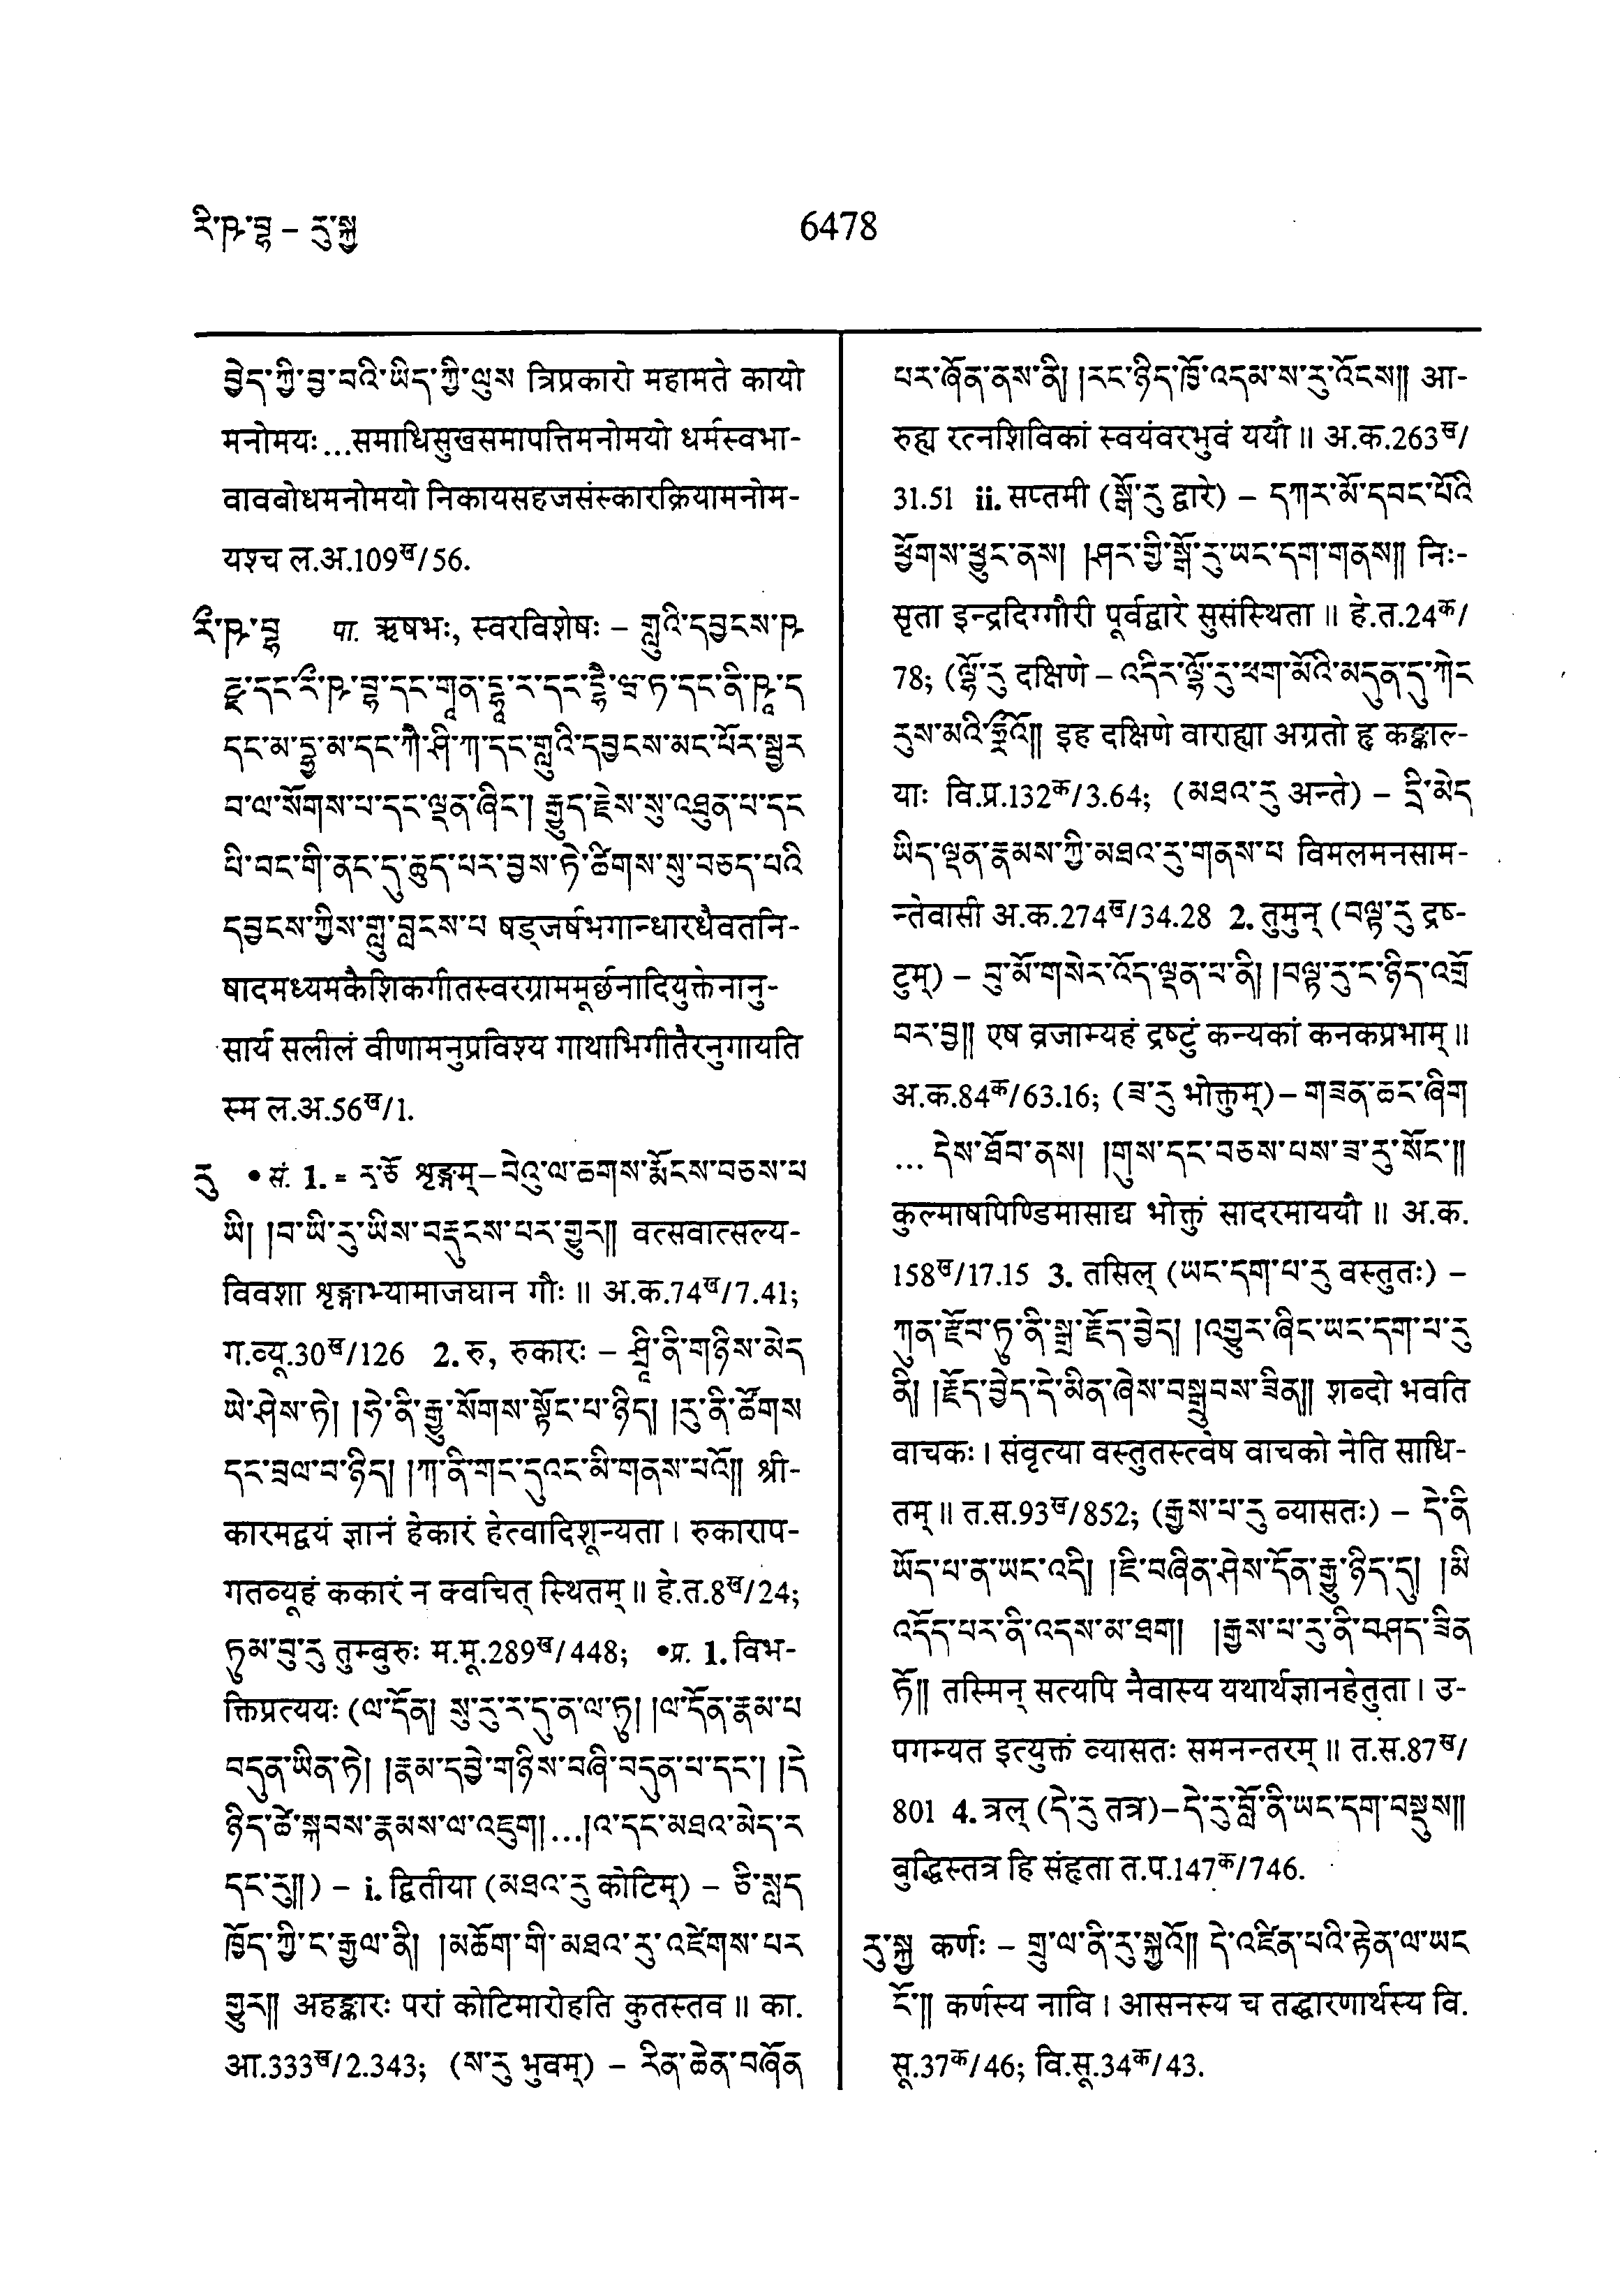 རི་ཥ་བྷ – རུ་སྐྱ
6478
བྱེད་ཀྱི་བྱ་བའི་ཡིད་ཀྱི་ལུས त्रिप्रकारो महामते कायो
मनोमयः...समाधिसुखसमापत्तिमनोमयो धर्मस्वभा-
वावबोधमनोमयो निकायसहजसंस्कारक्रियामनोम-
यश्च ल.अ.109ख/56.
རི་ཥ་བྷ पा. ऋषभः, स्वरविशेषः – གླུའི་དབྱངས་ཥ
ཛྫ་དང་རི་ཥ་བྷ་དང་གཱན་དྷཱ་ར་དང་དྷཻ་ཝ་ཏ་དང་ནི་ཥཱ་ད
དང་མ་དྷྱ་མ་དང་ཀཻ་ཤི་ཀ་དང་གླུའི་དབྱངས་མང་པོར་སྦྱར
བ་ལ་སོགས་པ་དང་ལྡན་ཞིང་། རྒྱུད་རྗེས་སུ་འཐུན་པ་དང
པི་བང་གི་ནང་དུ་ཆུད་པར་བྱས་ཏེ་ཚིགས་སུ་བཅད་པའི
དབྱངས་ཀྱིས་གླུ་བླངས་པ षड्जर्षभगान्धारधैवतनि-
षादमध्यमकैशिकगीतस्वरग्राममूर्छनादियुक्तेनानु-
सार्य सलीलं वीणामनुप्रविश्य गाथाभिगीतैरनुगायति
स्म ल.अ.56ख/1.
རུ •सं. 1. = རྭ་ཅོ शृङ्गम्–བེའུ་ལ་ཆགས་རྨོངས་བཅས་པ
ཡི། །བ་ཡི་རུ་ཡིས་བརྡུངས་པར་གྱུར༎ वत्सवात्सल्य-
विवशा शृङ्गाभ्यामाजघान गौः ॥ अ.क.74ख/7.41;
ग.व्यू.30ख/126 2. रु, रुकारः – ཤྲཱི་ནི་གཉིས་མེད
ཡེ་ཤེས་ཏེ། །ཧེ་ནི་རྒྱུ་སོགས་སྟོང་པ་ཉིད། །རུ་ནི་ཚོགས
དང་བྲལ་བ་ཉིད། །ཀ་ནི་གང་དུའང་མི་གནས་པའོ༎ श्री-
कारमद्वयं ज्ञानं हेकारं हेत्वादिशून्यता । रुकाराप-
गतव्यूहं ककारं न क्वचित् स्थितम् ॥ हे.त.8ख/24;
ཏུམ་བུ་རུ तुम्बुरुः म.मू.289ख/448; •प्र. 1. विभ-
क्तिप्रत्ययः (ལ་དོན། སུ་རུ་ར་དུ་ན་ལ་ཏུ། །ལ་དོན་རྣམ་པ
བདུན་ཡིན་ཏེ། །རྣམ་དབྱེ་གཉིས་བཞི་བདུན་པ་དང་། །དེ
ཉིད་ཚེ་སྐབས་རྣམས་ལ་འཇུག།...།འ་དང་མཐའ་མེད་ར
དང་རུ༎) – i. द्वितीया (མཐའ་རུ कोटिम्) – ཅི་སླད
ཁྱོད་ཀྱི་ང་རྒྱལ་ནི། །མཆོག་གི་མཐའ་རུ་འཛེགས་པར
གྱུར༎ अहङ्कारः परां कोटिमारोहति कुतस्तव ॥ का.
आ.333ख/2.343; (ས་རུ भुवम्) – རིན་ཆེན་བཞོན
པར་ཞོན་ནས་ནི། །རང་ཉིད་ཁྱོ་འདམ་ས་རུ་འོངས༎ आ-
रुह्य रत्नशिविकां स्वयंवरभुवं ययौ ॥ अ.क.263ख/
31.51 ii. सप्तमी (སྒོ་རུ द्वारे) – དཀར་མོ་དབང་པོའི
ཕྱོགས་ཕྱུང་ནས། །ཤར་གྱི་སྒོ་རུ་ཡང་དག་གནས༎ निः-
सृता इन्द्रदिग्गौरी पूर्वद्वारे सुसंस्थिता ॥ हे.त.24क/
78; (ལྷོ་རུ दक्षिणे – འདིར་ལྷོ་རུ་ཕག་མོའི་མདུན་དུ་ཀེང
རུས་མའི་ཧྲྀའོ༎ इह दक्षिणे वाराह्या अग्रतो हृ कङ्काल-
याः वि.प्र.132क/3.64; (མཐའ་རུ अन्ते) – དྲི་མེད
ཡིད་ལྡན་རྣམས་ཀྱི་མཐའ་རུ་གནས་པ विमलमनसाम-
न्तेवासी अ.क.274ख/34.28 2. तुमुन् (བལྟ་རུ द्रष्-
टुम्) – བུ་མོ་གསེར་འོད་ལྡན་པ་ནི། །བལྟ་རུ་ང་ཉིད་འགྲོ
བར་བྱ༎ एष व्रजाम्यहं द्रष्टुं कन्यकां कनकप्रभाम् ॥
अ.क.84क/63.16; (ཟ་རུ भोक्तुम्)– གཟན་ཆང་ཞིག
... དེས་ཐོབ་ནས། །གུས་དང་བཅས་པས་ཟ་རུ་སོང་༎
कुल्माषपिण्डिमासाद्य भोक्तुं सादरमाययौ ॥ अ.क.
158ख/17.15 3. तसिल् (ཡང་དག་པ་རུ वस्तुतः) –
ཀུན་རྫོབ་ཏུ་ནི་སྒྲ་རྗོད་བྱེད། །འགྱུར་ཞིང་ཡང་དག་པ་རུ
ནི། །རྗོད་བྱེད་དེ་མིན་ཞེས་བསྒྲུབས་ཟིན༎ शब्दो भवति
वाचकः । संवृत्या वस्तुतस्त्वेष वाचको नेति साधि-
तम् ॥ त.स.93ख/852; (རྒྱས་པ་རུ व्यासतः) – དེ་ནི
ཡོད་པ་ན་ཡང་འདི། །ཇི་བཞིན་ཤེས་དོན་རྒྱུ་ཉིད་དུ། །མི
འདོད་པར་ནི་འདས་མ་ཐག། །རྒྱས་པ་རུ་ནི་བཤད་ཟིན
ཏོ༎ तस्मिन् सत्यपि नैवास्य यथार्थज्ञानहेतुता । उ-
पगम्यत इत्युक्तं व्यासतः समनन्तरम् ॥ त.स.87ख/
801 4. त्रल् (དེ་རུ तत्र)–དེ་རུ་བློ་ནི་ཡང་དག་བསྡུས༎
बुद्धिस्तत्र हि संहृता त.प.147क/746.
རུ་སྐྱ कर्णः – གྲུ་ལ་ནི་རུ་སྐྱའོ༎ དེ་འཛིན་པའི་རྟེན་ལ་ཡང
ངོ་༎ कर्णस्य नावि । आसनस्य च तद्धारणार्थस्य वि.
सू.37क/46; वि.सू.34क/43.